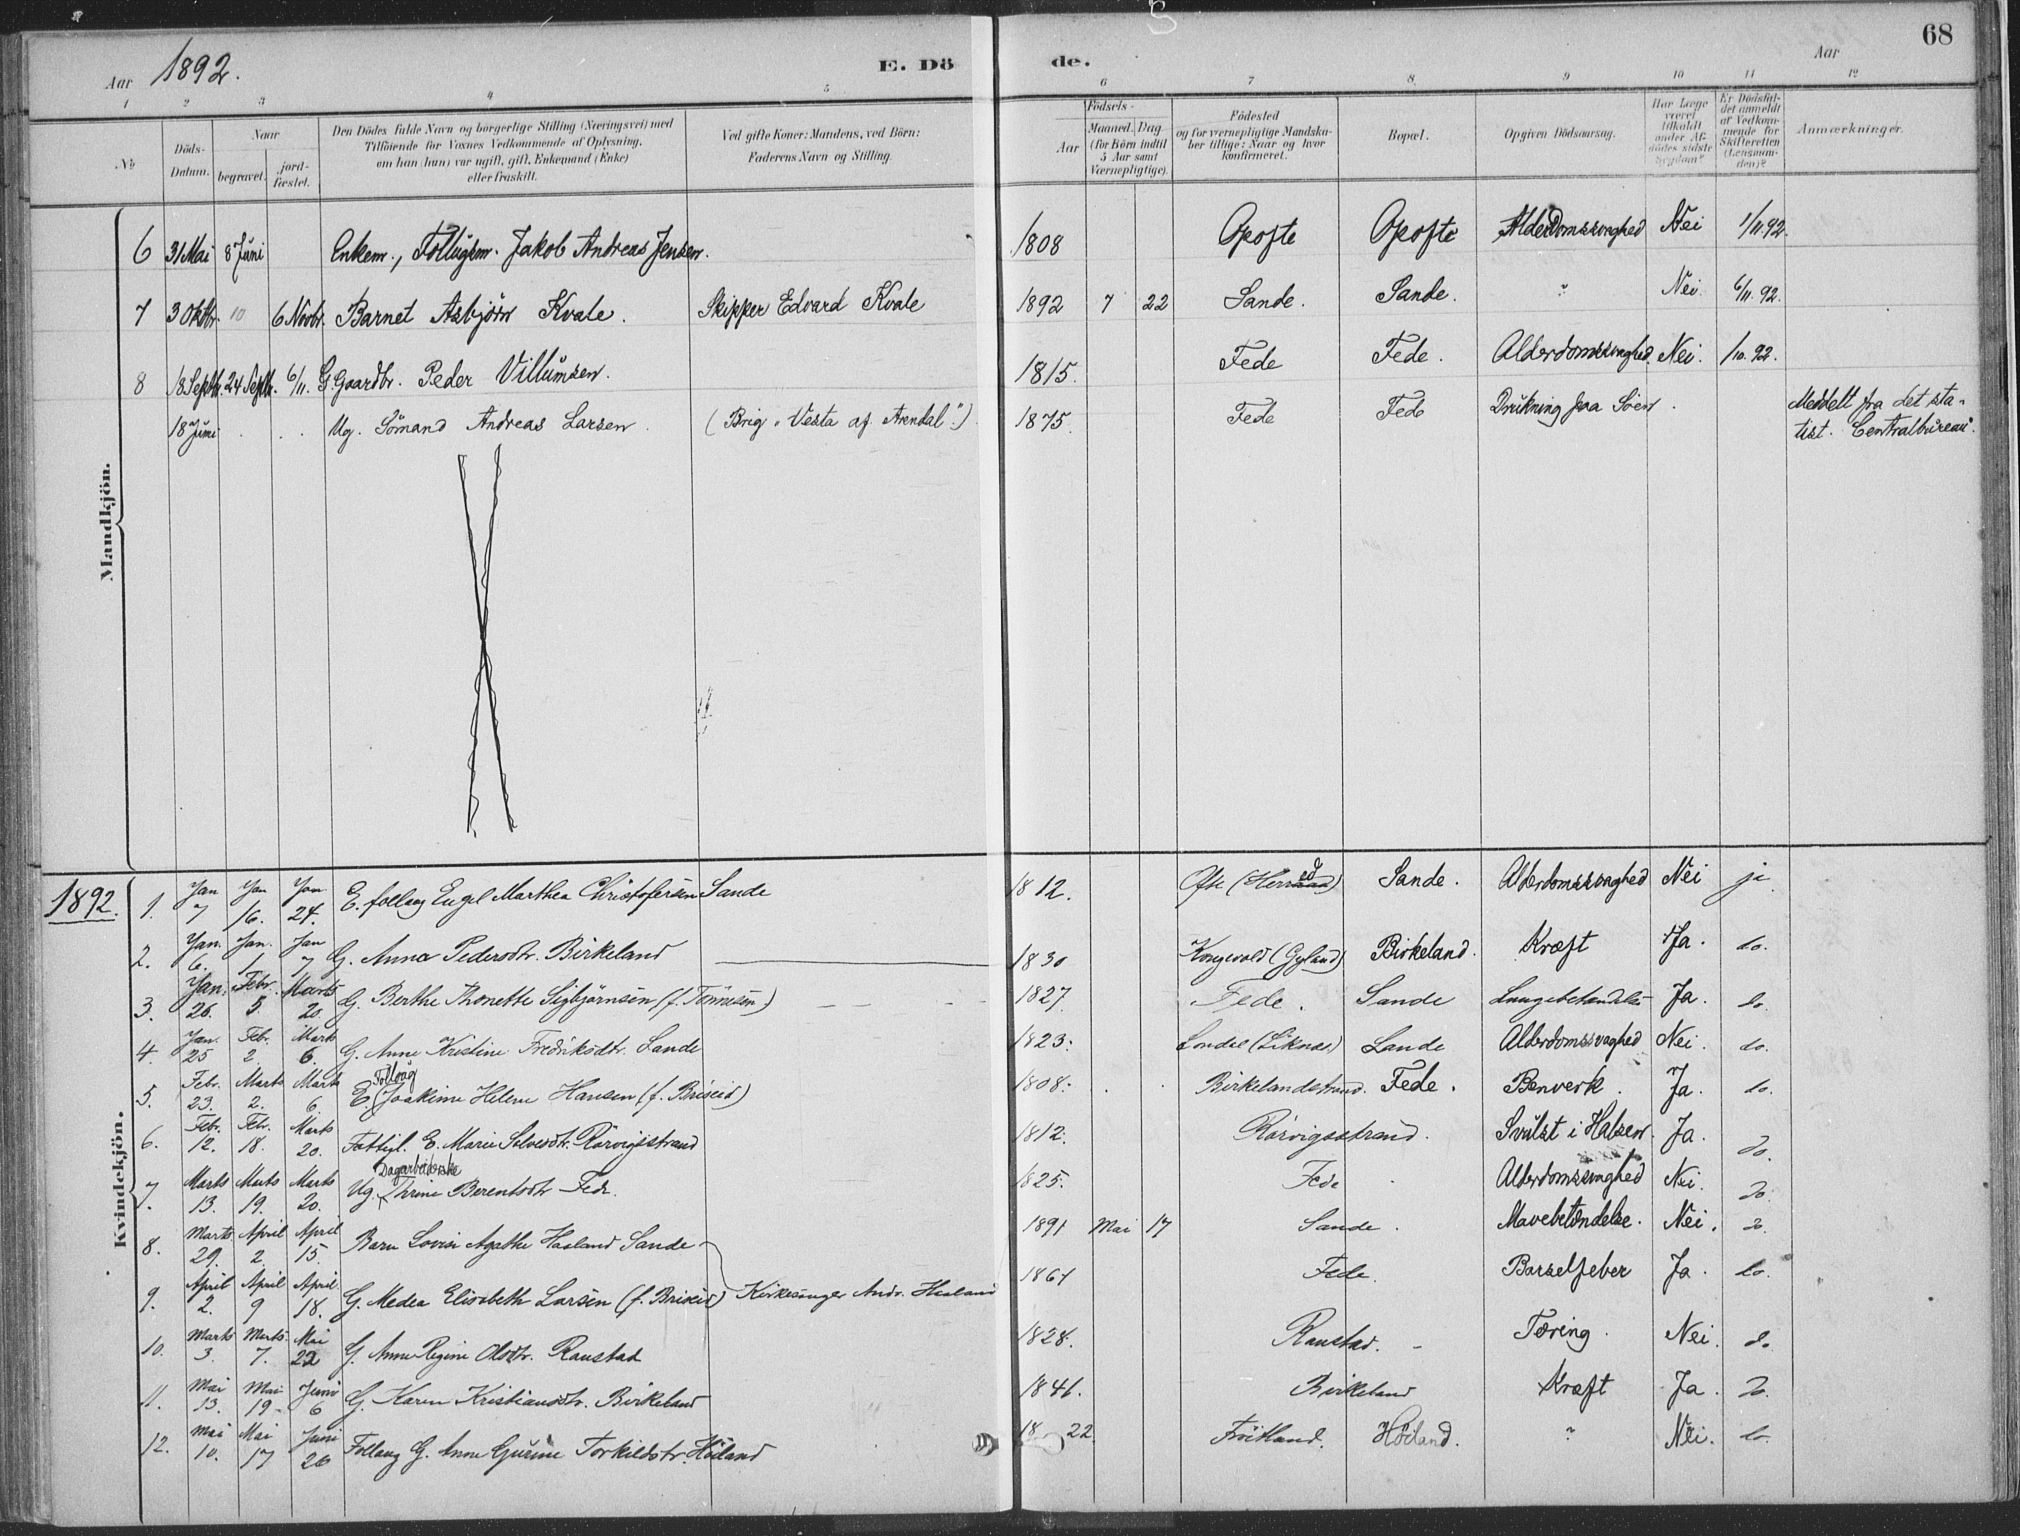 68
Aar 1892. E. Dö de. Aar
1 2 3 4 5 6 7 8. 9 10 11 12
No
Döds-
Datum.
Naar
begravet.
jord-
fæstet.
Den Dödes fulde Navn og borgerlige Stilling (Næringsvei) med
Tilföiende for Voxnes Vedkommende af Oplysning,
om han (hun) var ugift, gift, Enkemand (Enke)
eller fraskilt.
Ved gifte Koner: Mandens, ved Börn:
Faderens Navn og Stilling.
Födsels-
Aar
Maaned. Dag
(for Börn indtil
5 Aar samt
Værnepligtige).
Födested
og for værnepligtige Mandska-
ber tillige: Naar og hvor
konfirmeret.
Bopæl.
Opgiven Dödsaarsag.
Har Læge
været
tilkaldt
under Af-
dödes sidste
Sygdom?
Er Dödsfal-
det anmeldt
af Vedkom-
mende for
Skifteretten
(Lensman-
den)?
Anmærkninger.
Mandkjön.
6 31 Mai 8 Juni Enkem., Follugsm. Jakob Andreas Jensen. 1808 Opofte Opofte Alderdomssvaghed Nei 1/11 92.
7 3 Oktbr. 10 6 Novbr. Barnet Asbjörn Kvale. Skipper Edvard Kvale 1892 7 22 Sande. Sande. ? Nei 6/11 92.
8 18 Septbr. 24 Septbr. 6/11. G. Gaardbr. Peder Villumsen. 1815. Fede Fede. Alderdomssvaghed. Nei. 1/10. 92.
18 Juni Ug. Sömand Andreas Larsen. (Brig „Vesta af Arendal".) 1875. Fede Fede Drukning paa Söen. Meddelt fra det sta-
tist. Centralbureau.
Kvindekjön.
1892. 1. Jan 7 Jan 16. Jan 24. E. follaug Engel Marthea Christofersen Sande 1812. Ofte (Herred) Sande. Alderdomssvaghed Nei ja
2. Jan. 6. Jan. 1 Jan 7 G. Anna Pedersdtr. Birkeland 1830 Kongevold (Gyland) Birkeland. Kræft Ja. do.
3. Jan. 26. Febr. 5. Marts 20. G. Berthe Thonette Sigbjörnsen (f. Tönnesen) 1827. Fede. Sande Ja. do.
4. Jan. 25 Febr. 2 Marts 6. G. Anne Kristine Fredriksdtr. Sande 1823. (Liknes) Sande Alderdomssvaghed Nei. do.
5. Febr. 23. Marts 2. Marts 6. E. Follaug Joakime Helene Hansen (f. Briseid) 1808. Birkelandstrand. Fede. Benverk. Ja. do.
6. Febr. 12. Febr. 18. Marts 20. Fattigl. E. Marie Salvesdtr. Rörvigsstrand 1812. Rörvigsstrand. Svulst i Halsen. Ja. Do.
7. Marts 13. Marts 19. Marts 20. Ug. Dagarbeiderske Thrine Berentsdtr Fede. 1825. Fede Alderdomssvaghed Nei. Do.
8. Marts 29. April 2. April 15. Barn Lovise Agathe Haaland Sande 1891 Mai 17 Sande. Mavebetændelse. Nei. Do.
9. April 2. April 9 April 18. G. Medea Elisabeth Larsen (f. Briseid) Kirkesanger Andr. Haaland 1861 Fede. Barselfeber Ja. do.
10. Marts 3. Marts 7. Mai 22 G. Anne Regine Olsdtr. Raustad 1828. Raustad. Tæring. Nei. do
11. Mai 13. Mai 19. Juni 6 G. Karen Kristiansdtr. Birkeland 1841. Birkeland Kræft Ja. Do.
12. Mai 10. Mai 17 Juni 26 Follaug G. Anne Gurine Torkildsdtr. Höiland 1822. Fröitland. Höiland. ? Nei. do.